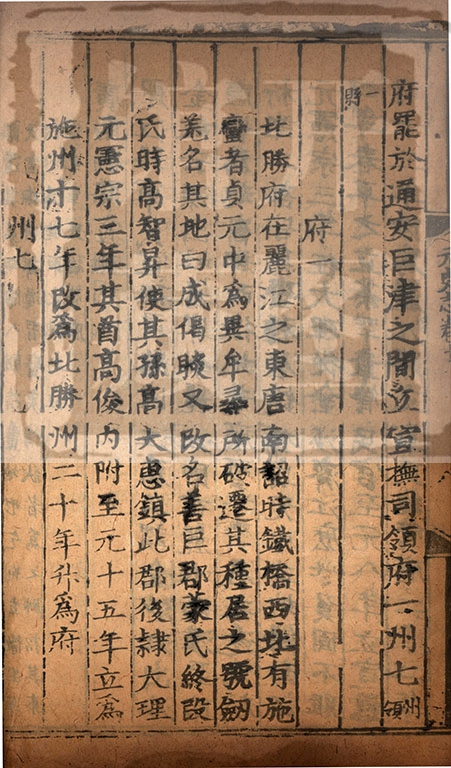 府罷於通安巨津之間立宣撫司領府一州七州領
一縣
府一
北勝府在麗江之東唐南詔時鐵橋西北有施
蠻者貞元中為異牟尋所破遷其種居之號劒
羌名其地曰成偈睒又改名善巨郡蒙氏終段
氏時高智昇使其孫高大惠鎮此郡後隷大理
元憲宗三年其酋高俊內附至元十五年立為
施州十七年改為北勝州二十年升為府
州七